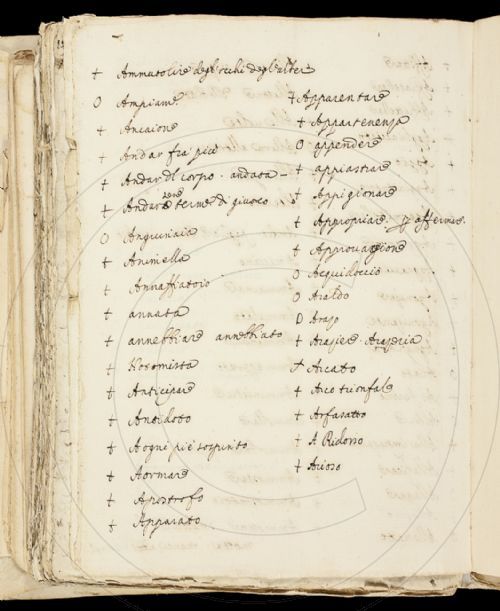 + Ammutolire degl'occhi degl'alberi
O Ampiame
+ Ancaione
+ Andar fra pie
+ Andar del corpo. andata –
+ Andare termine di giuoco
O Anguinaia
+ Animella
+ Annaffiatoio
+ annata
+ annebbiare annebbiato
+ Anticipare
+ Antidoto
+ A ogni piè sospinto
+ Aormare
+ Apostrofo
+ Apparato
+ Apparentare
+ Appartenenza
O appendere
+ appiastrare
+ Appigionare
+ Appropriare. p affermare.
+ Approvagione
O Acquidoccio
O Araldo
O Arazo
+ Arasiere Araseria
+ Arcato
+ Arco trionfale
+ Arfasatto
+ A Ridosso
+ Arioso